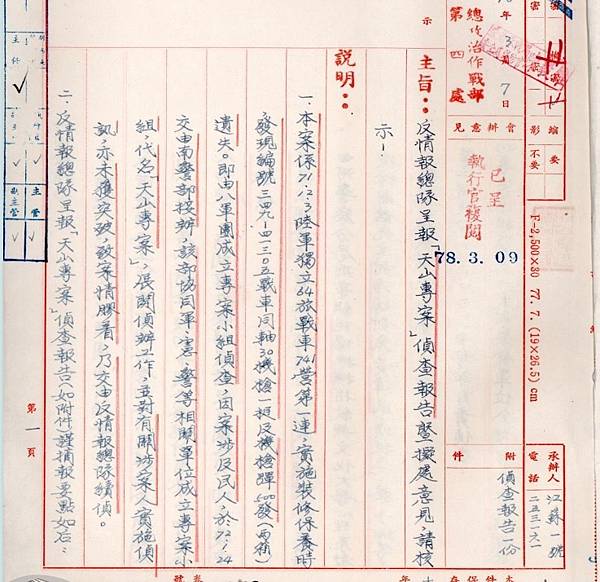 年3月7日
總政治作戰部
第四處
示
會辦意見
已呈
執行官複閱
78.3.09
影
不要
編
要
F-2,500×30 77. 7. (19×26.5)cm
承辦人
電話
江蘇一號
二五三一六一
附件
偵查報告一份
主旨：反情報總隊呈報「天山專案」偵查報告暨擬處意見，請核
示！
說明：
一、本案係71.2.3陸軍獨立64旅戰車741營第一連，實施裝備保養時
發現編號三四九-四一三〇五戰車同軸30機槍一挺及機槍彈500發（兩箱）
遺失。即由八軍團成立專案小組偵查，因案涉及民人，於72.1.24
交由南警部接辦，該部協同軍、憲、警等相關單位成立專案小
組，代名「天山專案」，展開偵辦工作，並對有關涉案人實施偵
訊，亦未獲突破，致案情膠着，乃交由反情報總隊續偵。
二、反情報總隊呈報「天山專案」偵查報告（如附件）謹摘報要點如右：
第一頁
主任
副主管
主管